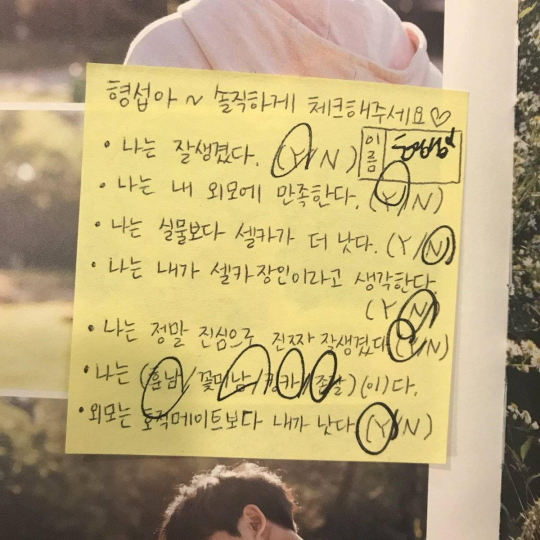 형섭아~ 솔직하게 체크해주세요♡
• 나는 잘생겼다. (Y/N) 이름
• 나는 내 외모에 만족한다. (Y/N)
• 나는 실물보다 셀카가 더 낫다. (Y/N)
• 나는 내가 셀카장인이라고 생각한다.
(Y/N)
• 나는 정말 진심으로 진짜 잘생겼다 (Y/N)
• 나는 (훈남/꽃미남/킹카/존잘)(이)다.
• 외모는 메이트보다 내가 낫다 (Y/N)